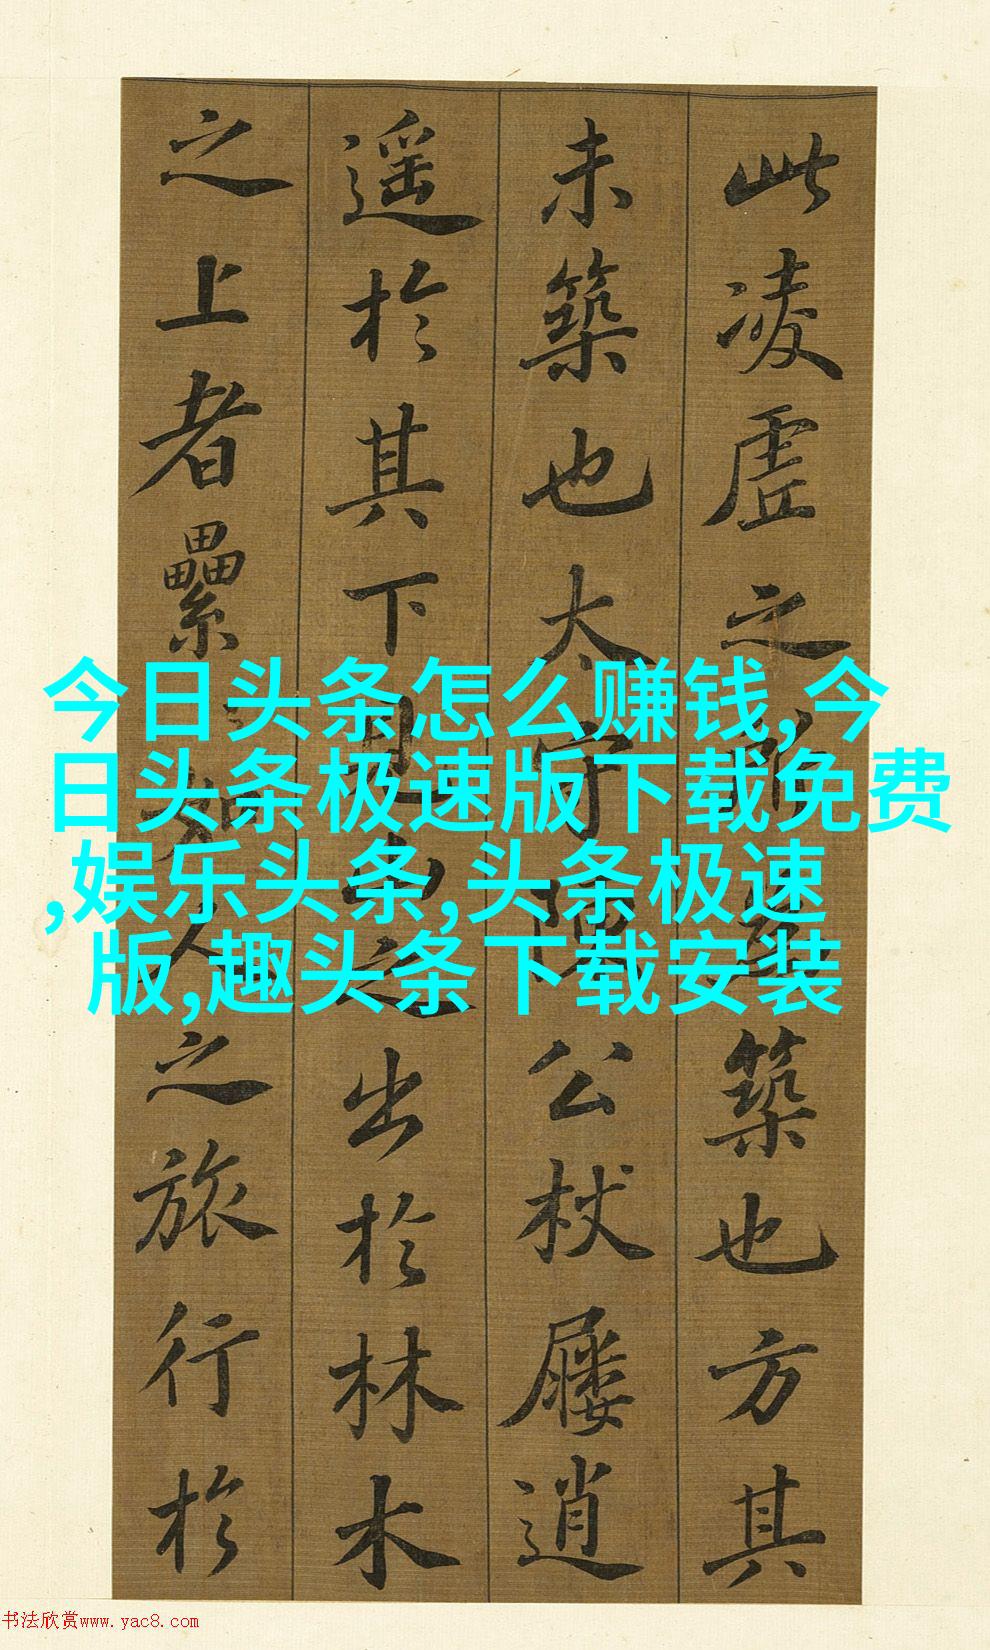 此凌虛之所為築也方其
未築也太守陳公杖屨逍
遥於其下見山之出於林木
之上者纍〻如人之旅行於
今日头条怎么赚钱,今
日头条极速版下载免费
,娱乐头条,头条极速
版,趣头条下载安装
书法欣赏www.yac8.com